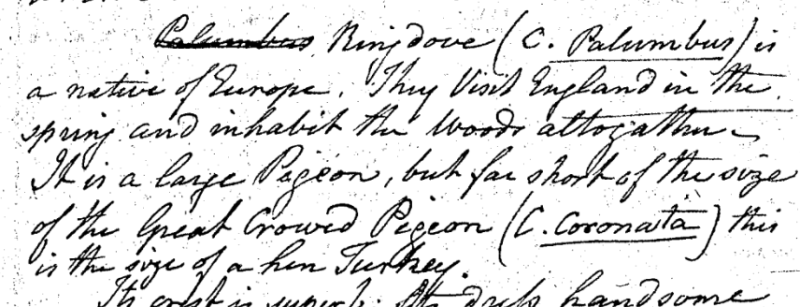 Palumbus, Ringdove (C. Palumbus) is
a native of Europe. They Visit England in the
spring and inhabit the Woods altogather –
It is a large Pigeon, but far short of the size
of the Great Crowed Pigeon (C. Coronata) this
is the size of a hen Turkey.
Its crest is superb. Its dress handsome